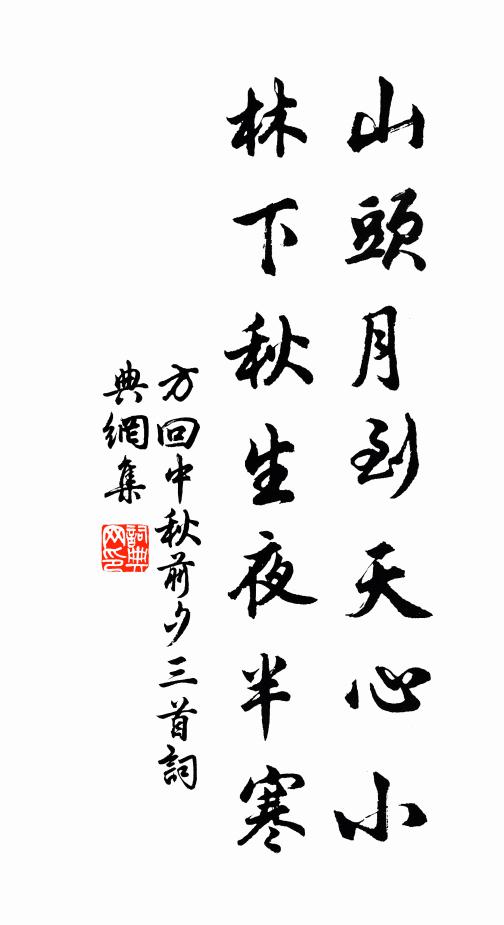 山頭月到天心小
林下秋生夜半寒
方回中秋前夕三首詞
典網集
詞典網印